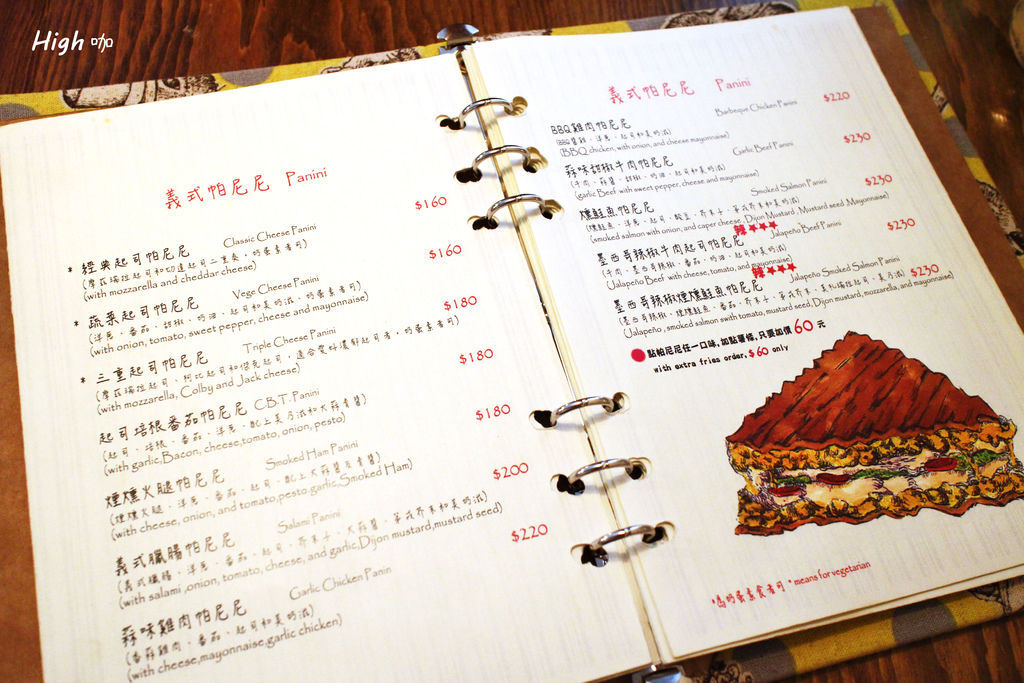 High 咖
義式帕尼尼 Panini
$160
* 經典起司帕尼尼 Classic Cheese Panini
(摩茲瑞拉起司和切達起司二重奏，奶蛋素者可)
(with mozzarella and cheddar cheese)
$160
* 蔬菜起司帕尼尼 Vege Cheese Panini
(洋蔥、番茄、甜椒、奶油、起司和美奶滋，奶蛋素者可)
(with onion, tomato, sweet pepper, cheese and mayonnaise)
$180
* 三重起司帕尼尼 Triple Cheese Panini
(摩茲瑞拉起司、柯比起司和傑克起司，適合愛好濃郁起司者，奶蛋素者可)
(with mozzarella, Colby and Jack cheese)
$180
起司培根番茄帕尼尼 C.B.T. Panini
(起司、培根、番茄、洋蔥，配上美乃滋和大蒜青醬)
(with garlic, Bacon, cheese, tomato, onion, pesto)
$180
煙燻火腿帕尼尼 Smoked Ham Panini
(煙燻火腿、洋蔥、番茄、起司，配上大蒜醬及青醬)
(with cheese, onion, and tomato, pesto, garlic, Smoked Ham)
$200
義式臘腸帕尼尼 Salami Panini
(義式臘腸、洋蔥、番茄、起司、芥末子、大蒜醬、第戎芥末和美奶滋)
(with salami ,onion, tomato, cheese, and garlic, Dijon mustard, mustard seed)
$220
蒜味雞肉帕尼尼 Garlic Chicken Panin
(香蒜雞肉、番茄、起司和美奶滋)
(with cheese, mayonnaise, garlic chicken)
義式帕尼尼 Panini
BBQ雞肉帕尼尼 Barbeque Chicken Panini $220
(BBQ醬雞、洋蔥、起司和美奶滋)
(BBQ chicken, with onion, and cheese mayonnaise)
蒜味甜椒牛肉帕尼尼 Garlic Beef Panini $230
(牛肉、蒜醬、甜椒、奶油、起司和美奶滋)
(garlic Beef with sweet pepper, cheese and mayonnaise)
燻鮭魚帕尼尼 Smoked Salmon Panini $230
(燻鮭魚、洋蔥、起司、酸豆、芥末子、第戎芥末和美奶滋)
(smoked salmon with onion, and caper cheese, Dijon Mustard , Mustard seed Mayonnaise)
辣★★★
墨西哥辣椒牛肉起司帕尼尼 Jalapeño Beef Panini $230
(牛肉、墨西哥辣椒、番茄、奶油、起司和美奶滋)
(Jalapeño Beef with cheese, tomato, and mayonnaise)
辣★★★
墨西哥辣椒煙燻鮭魚帕尼尼 Jalapeño Smoked Salmon Panini $230
(墨西哥辣椒、煙燻鮭魚、番茄、芥末子、第戎芥末、莫札瑞拉起司、美乃滋)
(Jalapeño , smoked salmon swith tomato, mustard seed, Dijon mustard, mozzarella, and mayonnaise)
點帕尼尼任一口味，加點薯條，只要加價 60 元
with extra fries order, $60 only
*為奶蛋素食者可 * means for vegetarian